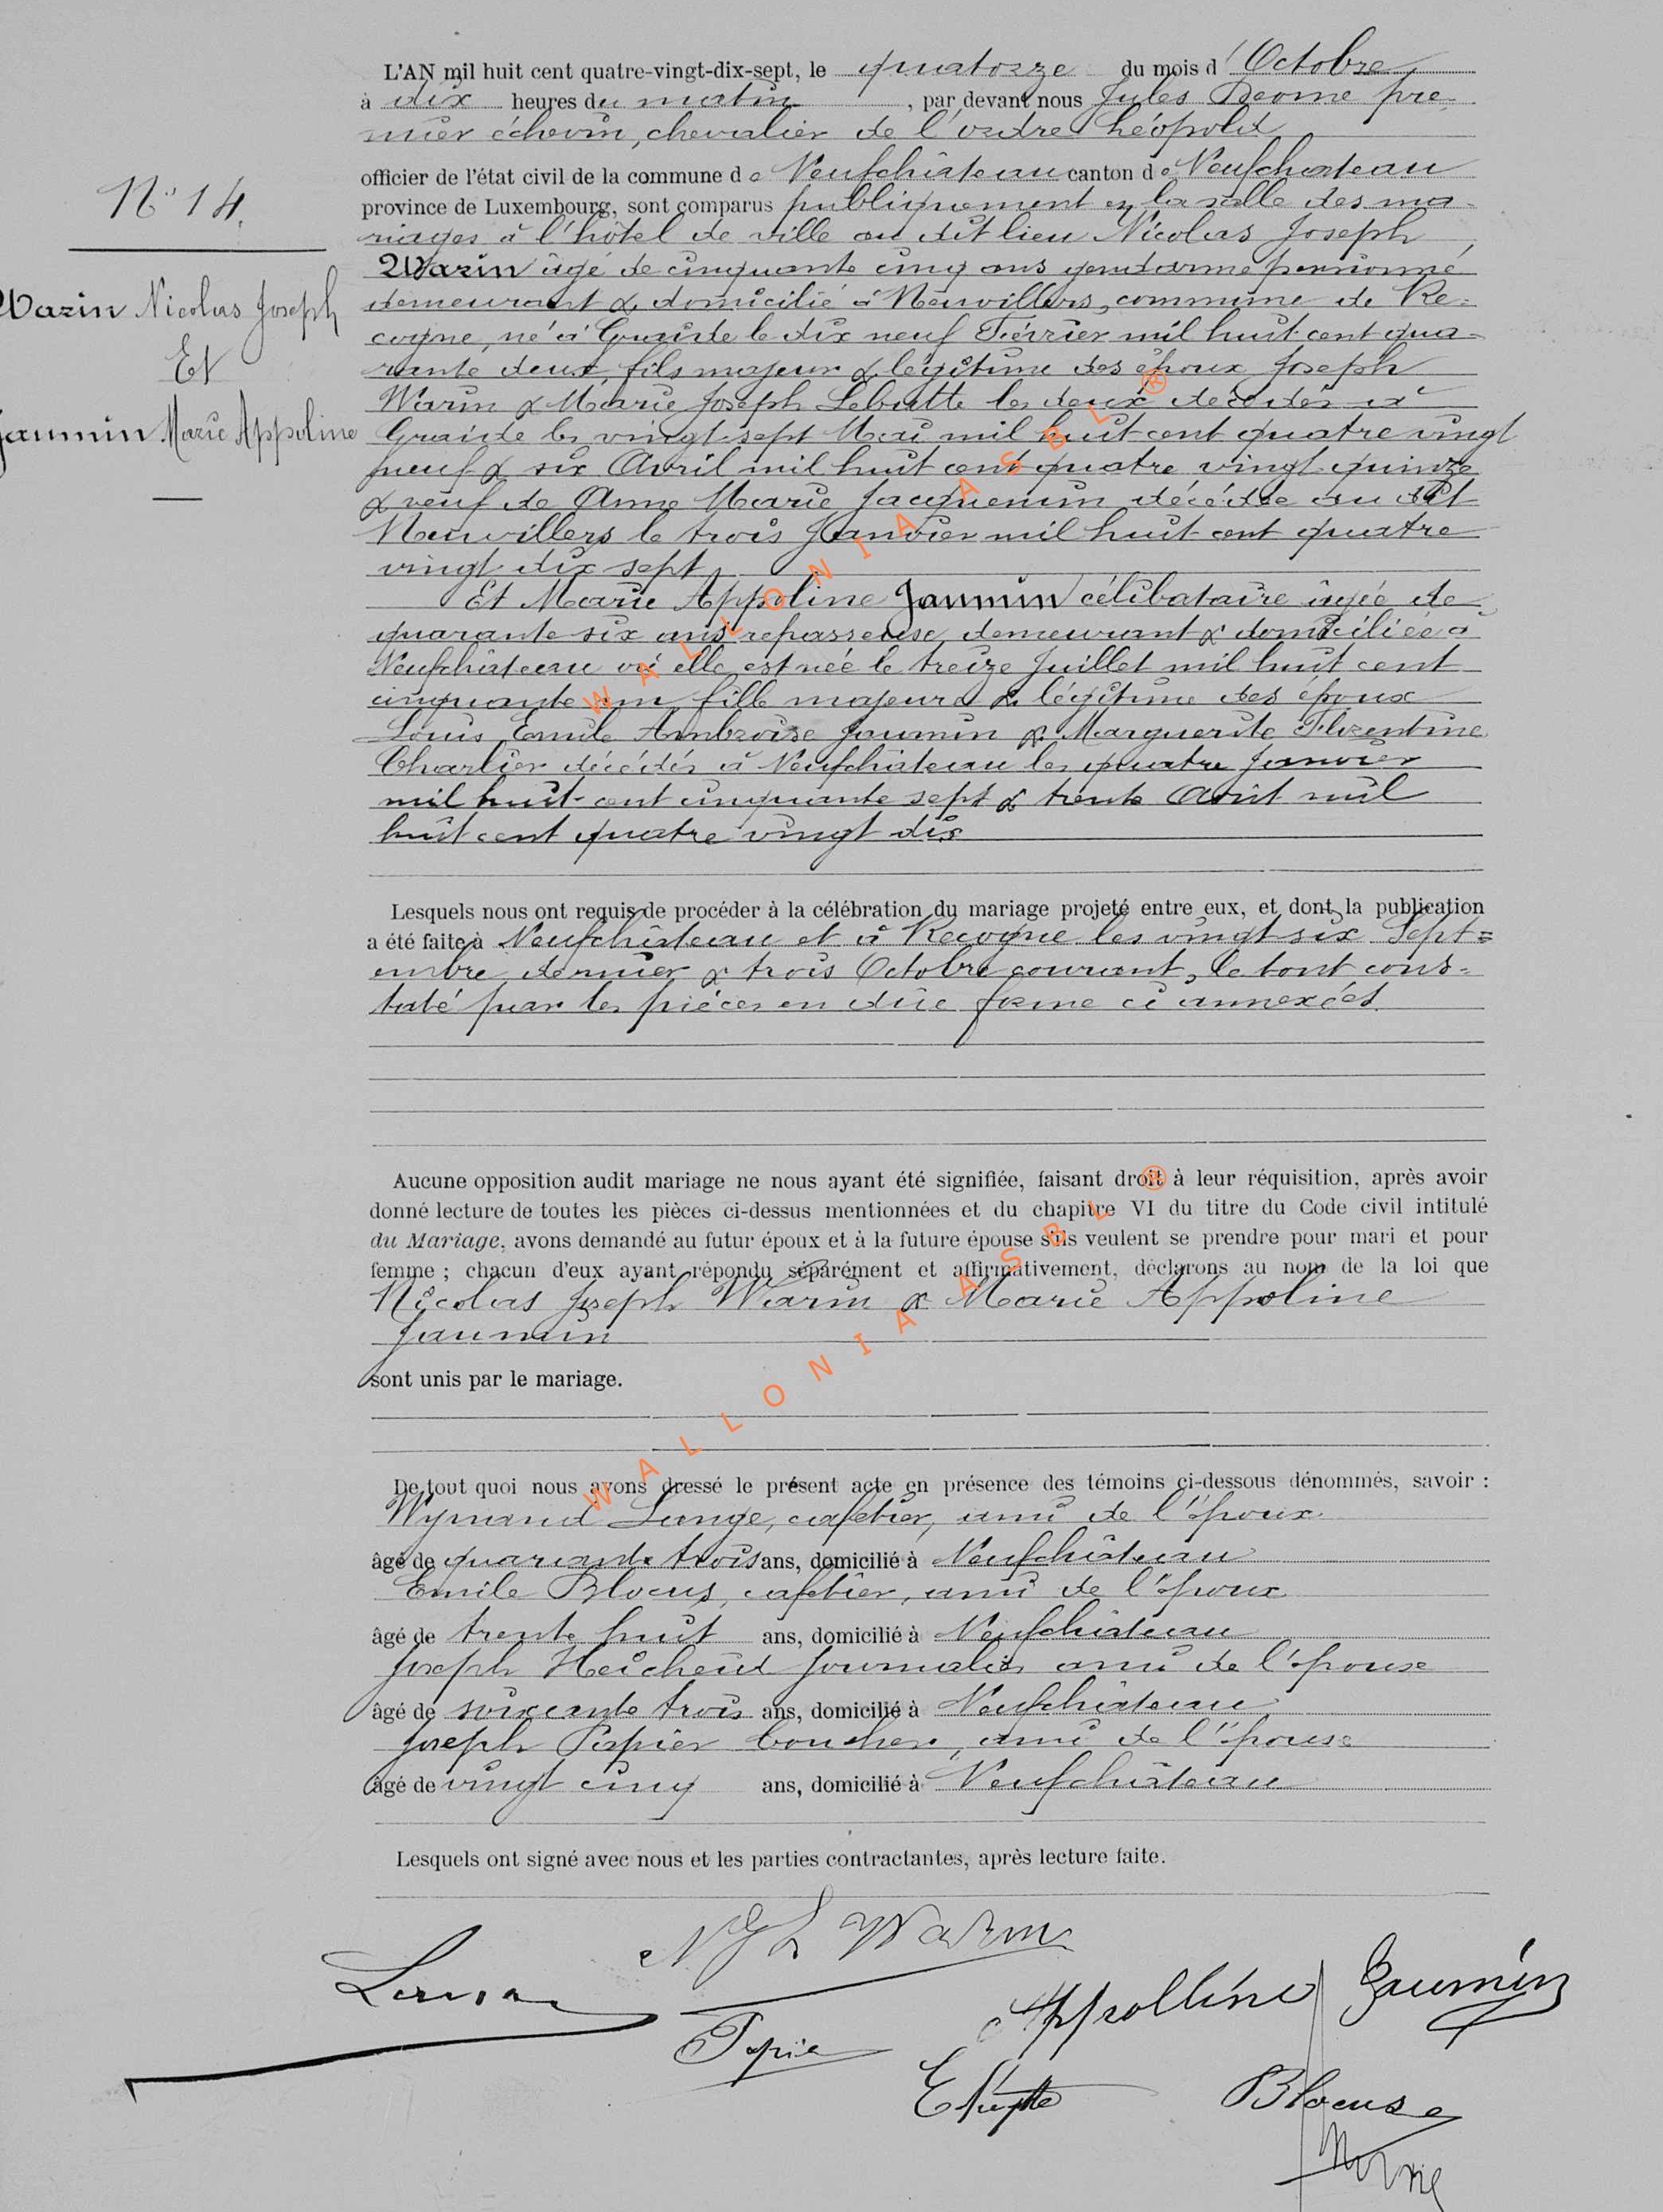 L'AN mil huit cent quatre-vingt-dix-sept, le quatorze du mois d'Octobre
à dix heures du matin, par devant nous Jules pre-
mier échevin, chevalier de l'ordre Léopold
officier de l'état civil de la commune de Neufchâteau canton de Neufchateau
N° 14.
province de Luxembourg, sont comparus publiquement en la salle des ma-
riages à l'hôtel de ville au dit lieu Nicolas Joseph
Warin âgé de cinquante cinq ans gendarme pensionné
Warin Nicolas Joseph
Et
Jaumin Marie Appoline
demeurant & domicilié à Neuvillers, commune de Re=
cogne, né à Graide le dix neuf Février mil huit cent qua-
rante deux, fils majeur & légitime des époux Joseph
Warin & Marie Joseph Lebutte les deux décédés à
Graide les vingt-sept Mai mil huit cent quatre vingt
neuf & six Avril mil huit cent quatre vingt quinze
& veuf de Anne Marie Jacquemin décédée au dit
Neuvillers le trois Janvier mil huit cent quatre
vingt dix sept
Et Marie Appoline Jaumin célibataire âgée de
quarante six ans repasseuse, demeurant & domiciliée à
Neufchâteau où elle est née le treize Juillet mil huit cent
cinquante un fille majeure & légitime des époux
Louis Emile Ambroise Jaumin & Marguerite Florentine
Charlier décédés à Neufchâteau les quatre Janvier
mil huit cent cinquante sept & trente Août mil
huit cent quatre vingt dix
Lesquels nous ont requis de procéder à la célébration du mariage projeté entre eux, et dont la publication
a été faite à Neufchâteau et à Recogne les vingt-six Sept=
embre dernier & trois Octobre courant, le tout cons-
taté par les pièces en dûe forme ci annexées.
Aucune opposition audit mariage ne nous ayant été signifiée, faisant droit à leur réquisition, après avoir
donné lecture de toutes les pièces ci-dessus mentionnées et du chapitre VI du titre du Code civil intitulé
du Mariage, avons demandé au futur époux et à la future épouse s'ils veulent se prendre pour mari et pour
femme ; chacun d'eux ayant répondu séparément et affirmativement, déclarons au nom de la loi que
Nicolas Joseph Warin & Marie Appoline
Jaumin
sont unis par le mariage.
De tout quoi nous avons dressé le présent acte en présence des témoins ci-dessous dénommés, savoir :
Wynand Lunge, cafetier, ami de l'époux
âgé de quarante trois ans, domicilié à Neufchâteau
Emile Blocus, cafetier, ami de l'époux
âgé de trente huit ans, domicilié à Neufchâteau
Joseph journalier ami de l'épouse
âgé de soixante trois ans, domicilié à Neufchâteau
Joseph Papier boucher, ami de l'épouse
âgé de vingt cinq ans, domicilié à Neufchâteau
Lesquels ont signé avec nous et les parties contractantes, après lecture faite.
Warin
Appolline Jaumin
Blocus
WALLONIA ASBL ®
WALLONIA ASBL ®